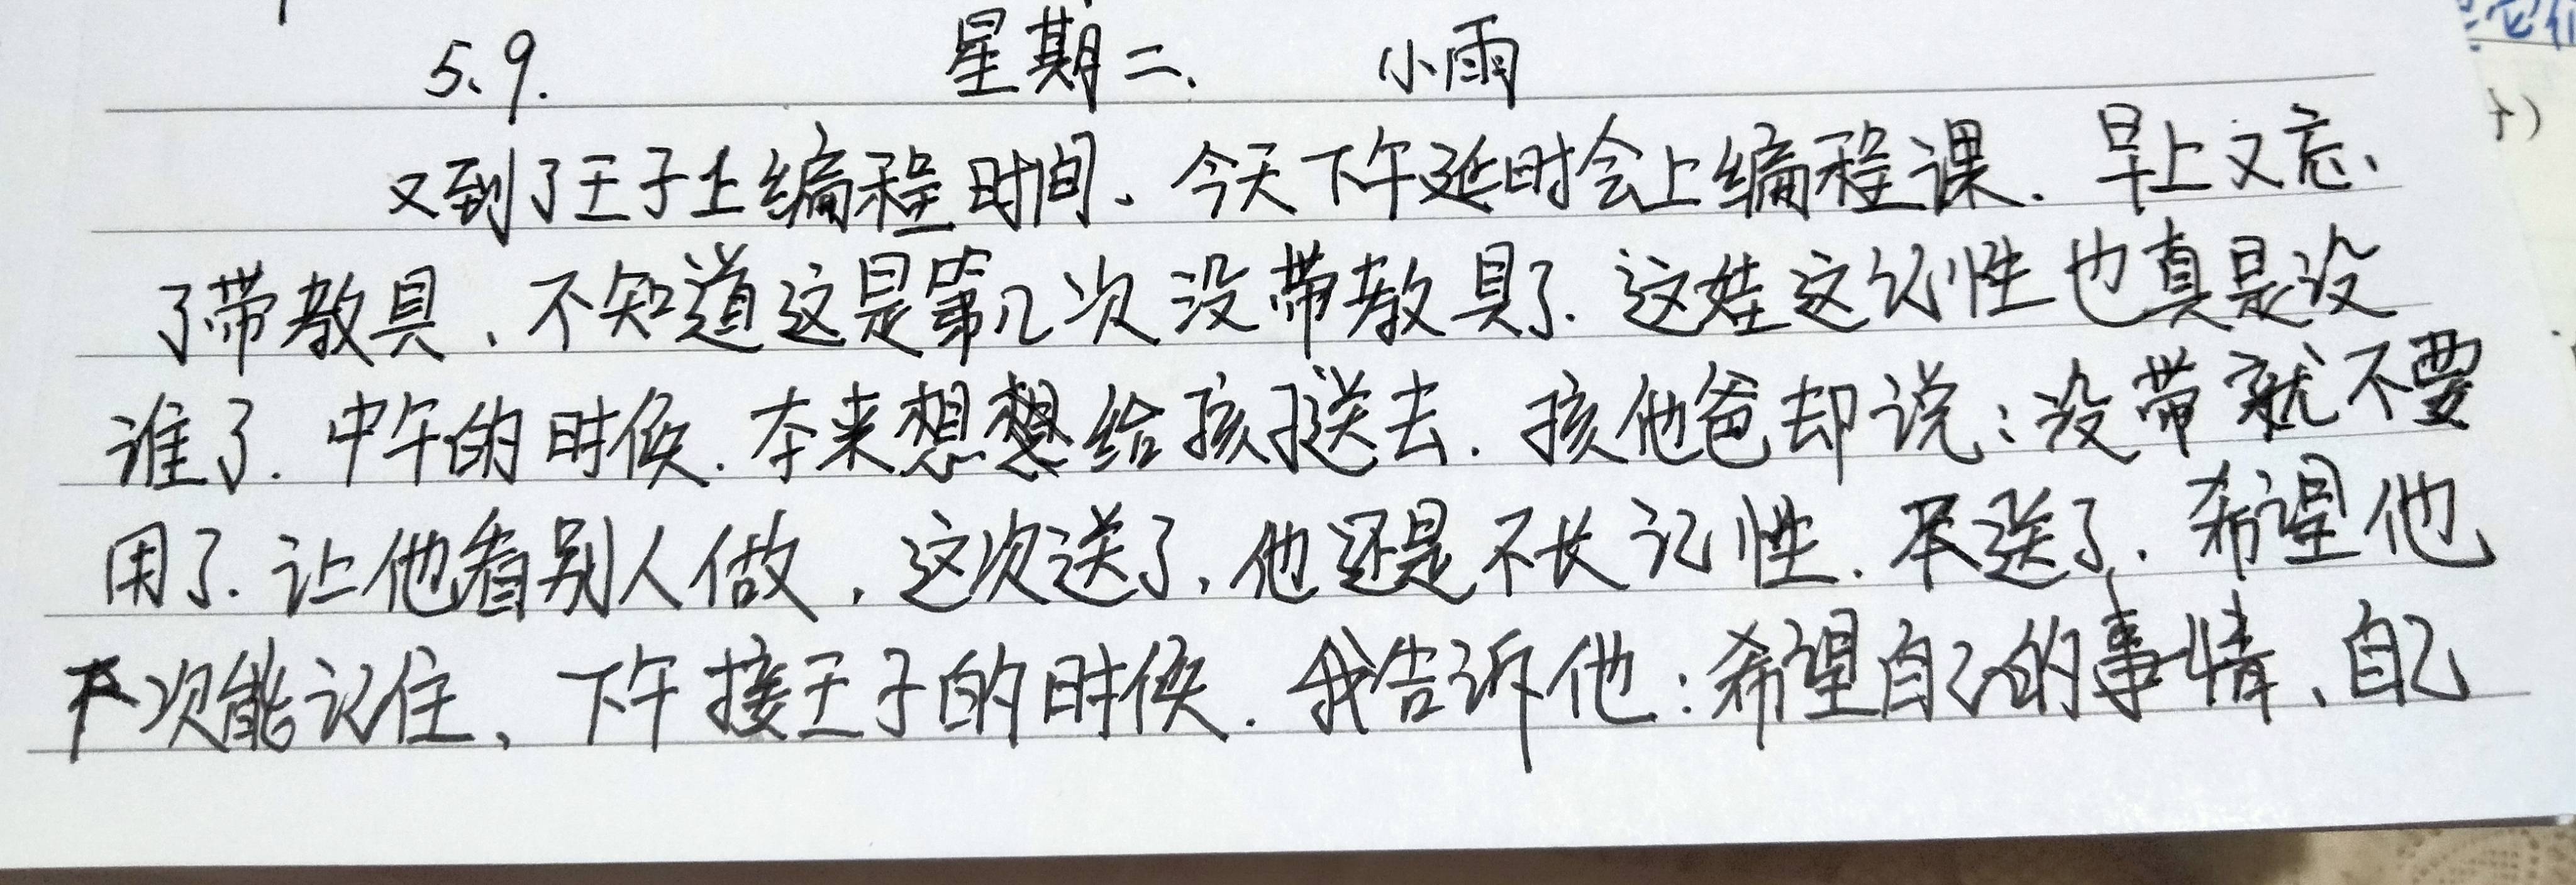 5.9. 星期二. 小雨
又到了王子上编程时间、今天下午延时会上编程课. 早上又忘、
了带教具、不知道这是第几次没带教具了. 这娃这记性也真是没
谁了. 中午的时候. 本来想想给孩子送去. 孩他爸却说:没带就不要
用了. 让他看别人做, 这次送了, 他还是不长记性. 不送了. 希望他
下次能记住、下午接王子的时候. 我告诉他:希望自己的事情、自己